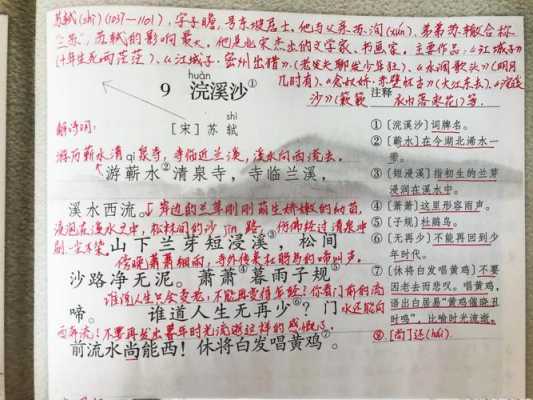 苏轼(shì)(1037—1101),字子瞻,号东坡居士。他与父苏洵(xún),弟弟苏辙合称
三苏,苏轼的影响最大,他是北宋杰出的文学家、书画家,主要作品:《江城子》
(十年生死两茫茫)、《江城子·密州出猎》(老夫聊发少年狂)、《水调歌头》(明月
几时有)、《念奴娇·赤壁怀古》(大江东去)、《浣溪
沙》(簌簌衣巾落枣花)等。
huàn
9 浣溪沙①
shì
[宋]苏 轼
解诗词:
游历蕲水清qi泉寺,寺临近兰溪,溪水向西流去。
游蕲水②清泉寺,寺临兰溪,
溪水西流。
岸边的兰草刚刚萌生娇嫩的幼芽,
浸泡在溪水之中,松林间的沙
路,仿佛经过清泉冲
刷一尘不染
山下兰芽短浸溪③,松间
傍晚萧萧细雨,寺外传来杜鹃鸟的啼叫声。
沙路净无泥。萧萧④暮雨子规⑤
谁道人生只会变老,不能再
年轻?你看门前的流
啼。 谁道人生无再少⑥?门
水还能向
西奔流!不要再发出暮年时光流逝这样的感慨了。
前流水尚能西!休将白发唱黄鸡⑦。
注释
①[浣溪沙]词牌名。
②[蕲水]在今湖北浠水一
带。
③[短浸溪]指初生的兰芽
浸润在溪水中。
④[萧萧]这里形容雨声。
⑤[子规]杜鹃鸟。
⑥[无再少]不能再回到少
年时代。
⑦[休将白发唱黄鸡]不要
因老去而悲叹。唱黄鸡,
语出白居易“黄鸡催晓丑
时鸣”,比喻时光流逝。
⑧[尚]还(hái)。